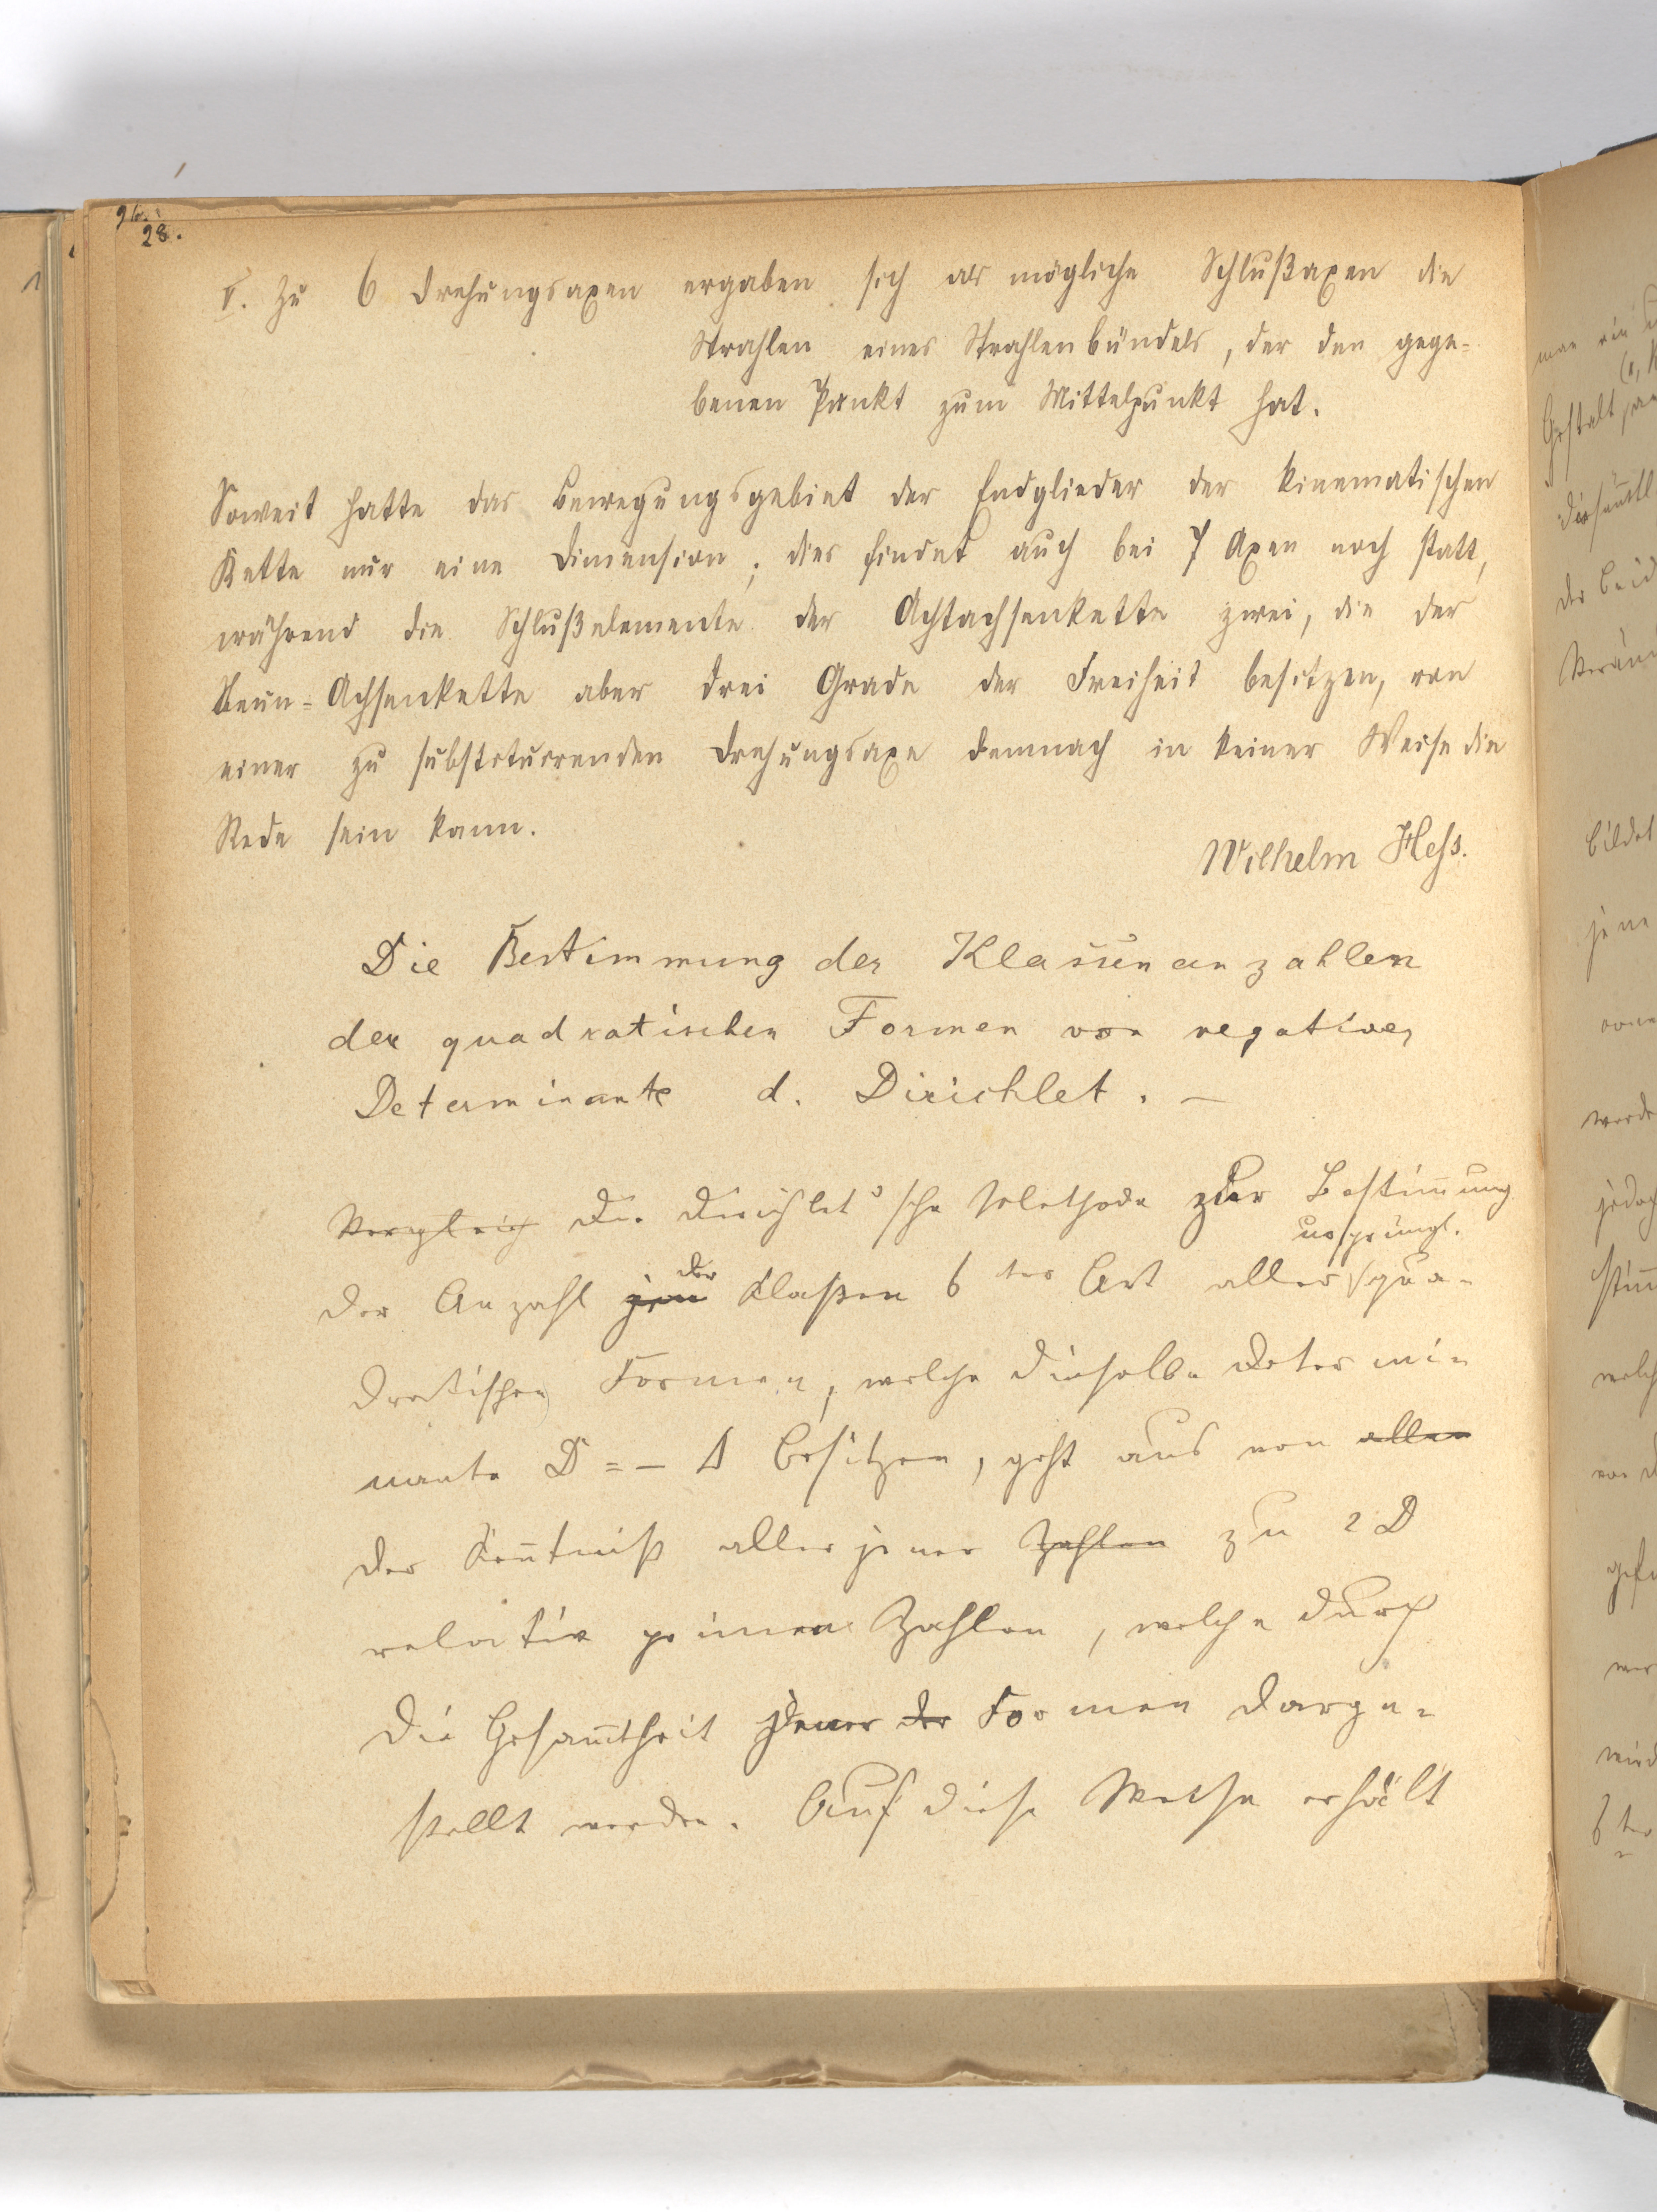 28.
V. Zu 6 Drehungsaxen ergaben sich als mögliche Schlußaxen die
Strahlen eines Strahlenbündels, der den gege-
benen Punkt zum Mittelpunkt hat.
Soweit hatte das Bewegungsgebiet der Endglieder der kinematischen
Kette nur eine Dimension; dies findet auch bei 7 Axen noch statt,
während die Schlußelemente der Achtachsenkette zwei, die der
Neun-Achsenkette aber drei Grade der Freiheit besitzen, von
einer zu substituirenden Drehungsaxe demnach in keiner Weise die
Rede sein kann.
Wilhelm Hess.
Die Bestimmung der Klassenanzahlen
der quadratischen Formen von negativer
Determinante d. Dirichlet. —
Vergleich Die Dirichlet'sche Methode zur Bestim̄ung
der Anzahl der Klaßen 6ter Art aller ursprüngl. qua-
dratischen Formen, welche dieselbe Determi-
nante D = – Δ besitzen, geht aus von allen
der Ken̄tniß aller jener Zahlen zu 2D
relativ primen Zahlen, welche durch
die Gesam̄theit jener der Formen darge-
stellt werden. Auf diese Weise erhält
man ein
Gestalt
der beid
bildet
jene
werde
jedoch
welch
von
wird